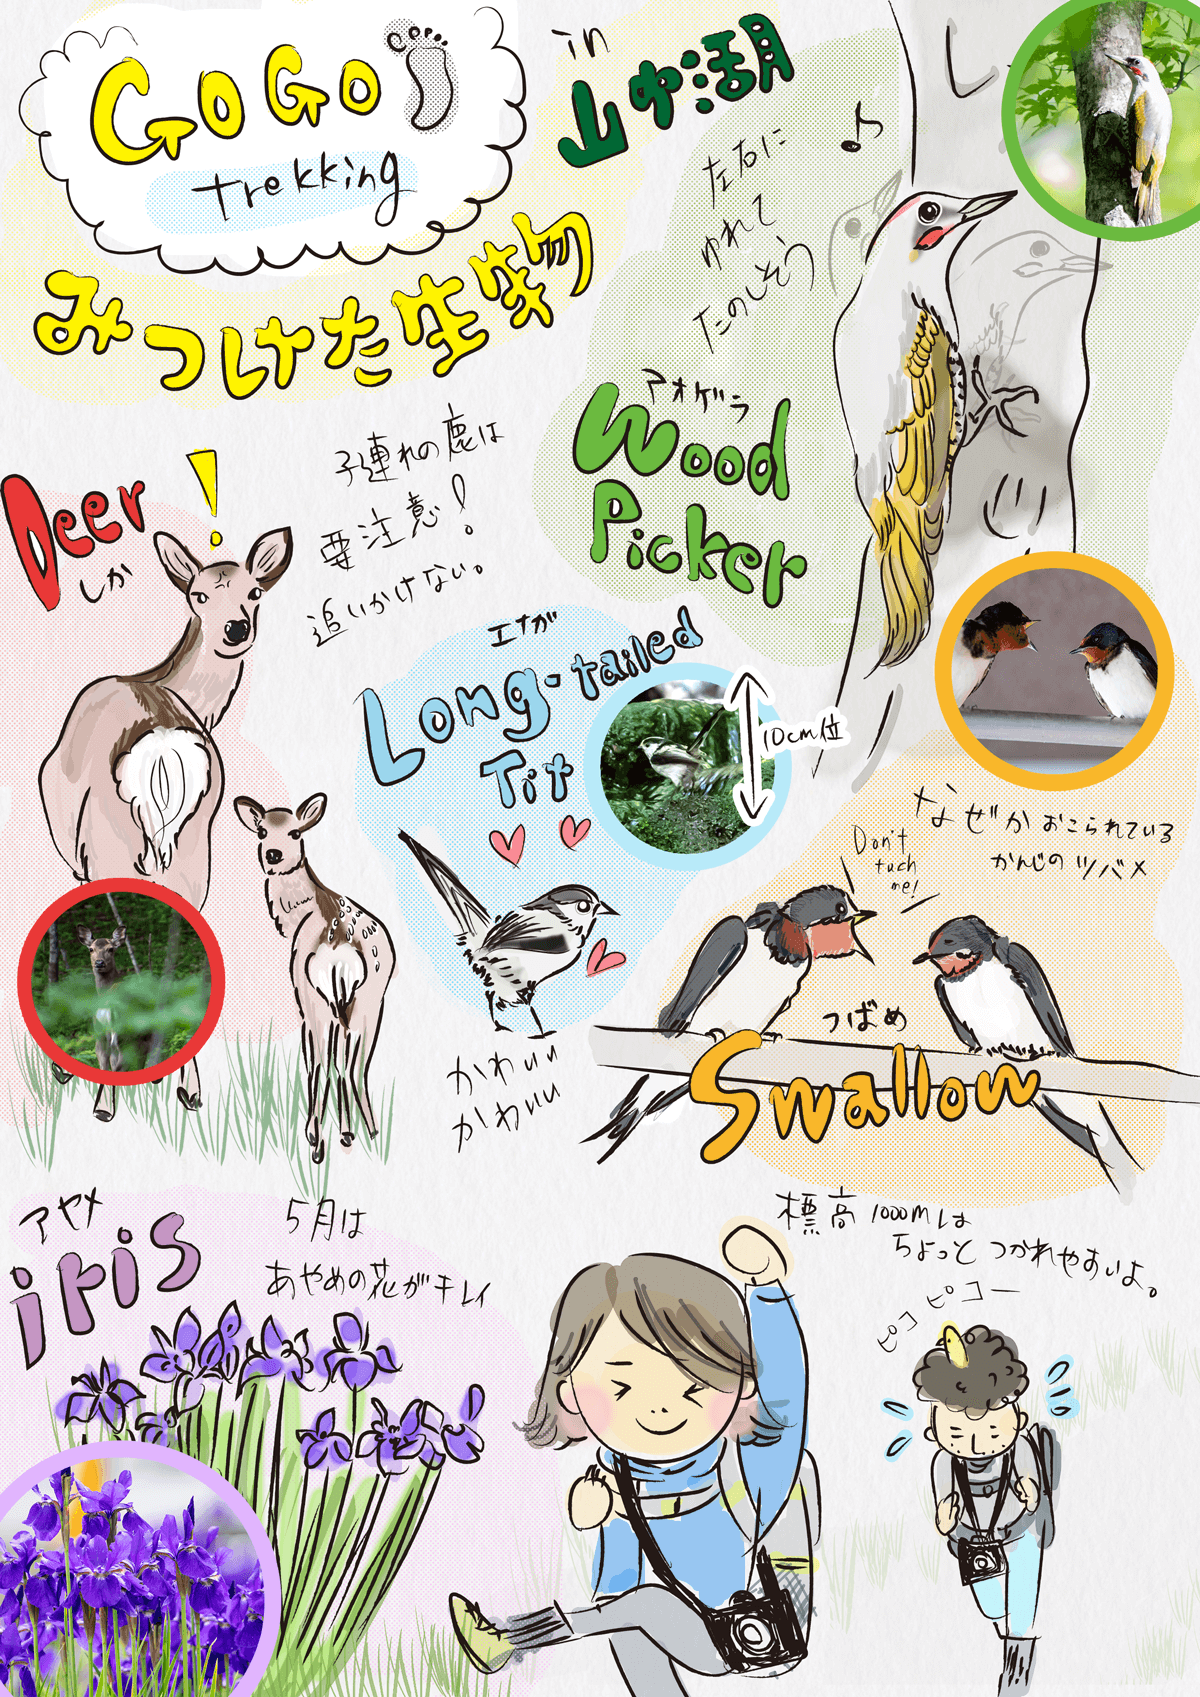 GoGo
trekking
in
山中湖
みつけた生物
左右に
ゆれて
たのしそう
アオゲラ
Wood
Picker
Deer
しか
!
子連れの鹿は
要注意!
追いかけない。
エナガ
Long-tailed
Tit
10cm位
かわいい
かわいい
なぜか おこられている
かんじの ツバメ
Don't
tuch
me!
つばめ
Swallow
アヤメ
iris
5月は
あやめの花がキレイ
標高 1000mは
ちょっと つかれやすいよ。
ピコ ピコー